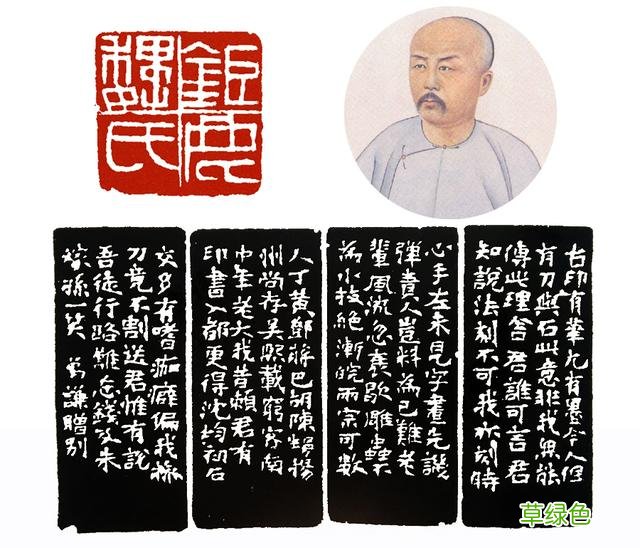 鉅鹿
魏氏
古印有筆尤有墨今人但
有刀與石此意非我無能
傳此理舍君誰可言君
知說法刻不可我亦刻時
心手左未見字畫先譏
彈貴人豈料為已難老
輩風流忽衰歇雕蟲
為小技絕浙皖兩宗可數
人丁黃鄧蔣巴胡陳揚
州尚存吳熙載窮客南
中年老大我昔賴君有
印書入都更得沈均初石
交多有嗜痂癖偏我操
刀竟不割送君惟有說
吾徒行路難忘錢及朱
稼孫一笑 謙贈別
草绿色